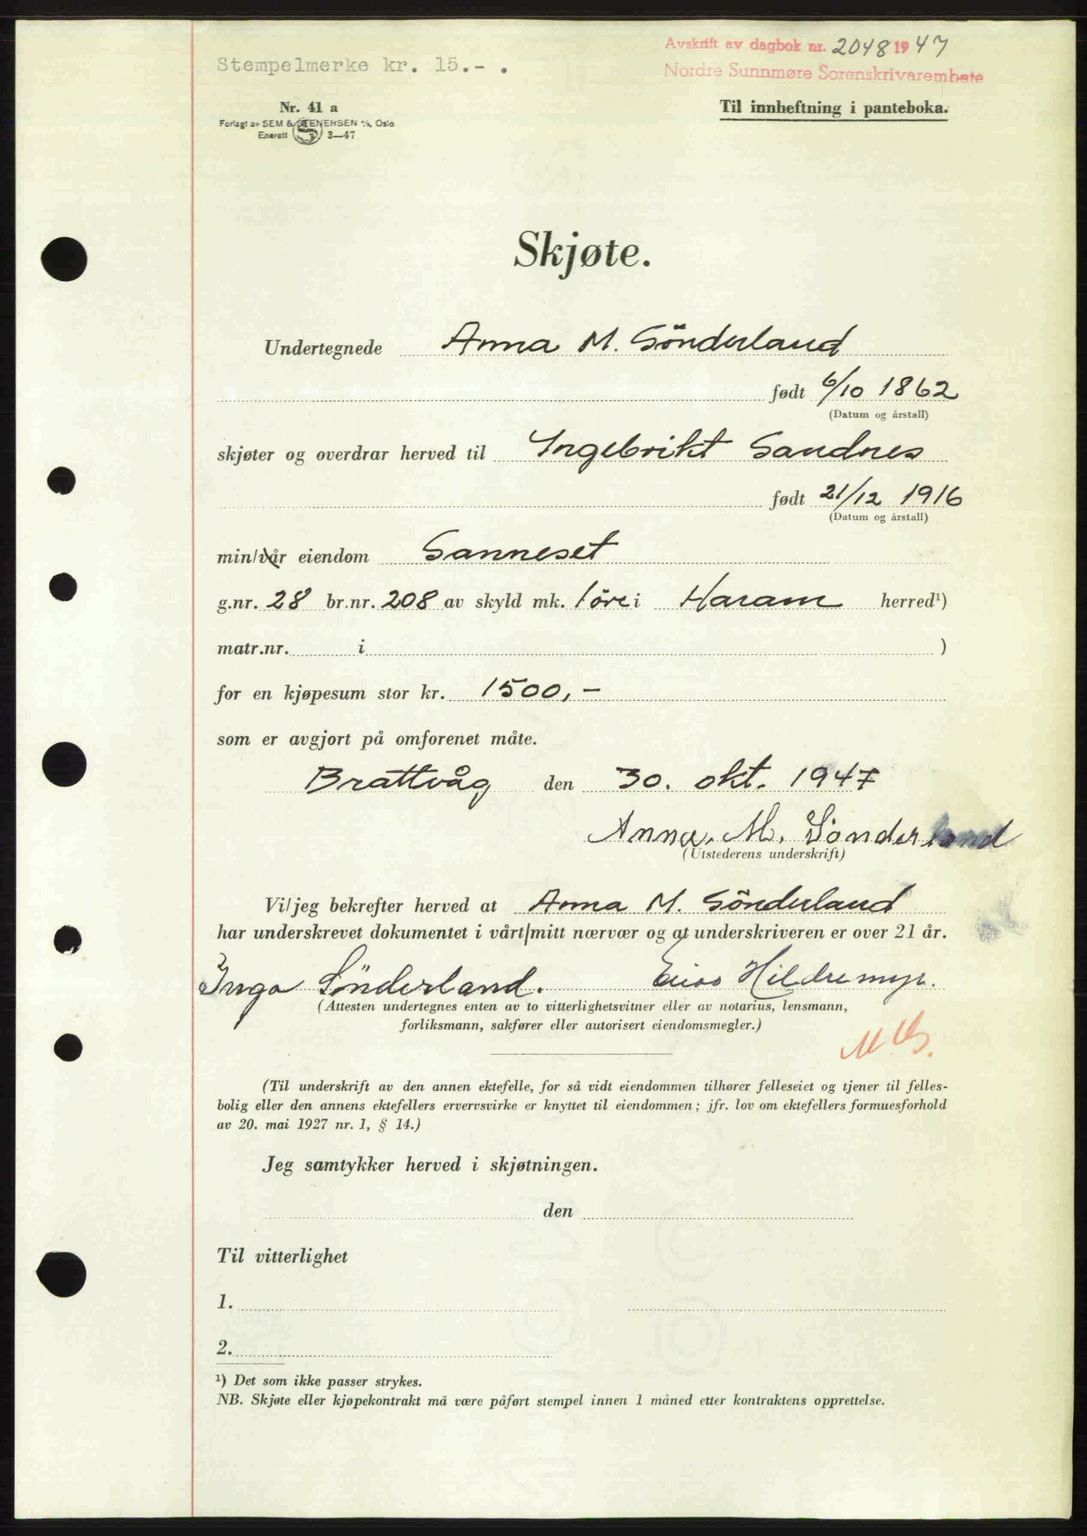 Stempelmerke kr. 15.- .
Avskrift av dagbok nr. 2048 1947
Nordre Sunnmøre Sorenskrivarembete
Nr. 41 a
Forlagt av SEM & STENERSEN A/S, Oslo
Enerett S 3—47
Til innheftning i panteboka.
Skjøte.
Undertegnede Anna M. Sönderland
født 6/10 1862
(Datum og årstall)
skjøter og overdrar herved til Ingebrikt Sandnes
født 21/12 1916
(Datum og årstall)
min/vår eiendom Sanneset
g.nr. 28 br.nr. 208 av skyld mk. 1 öre i Haram herred¹)
matr.nr. i )
for en kjøpesum stor kr. 1500,-
som er avgjort på omforenet måte.
Brattvåg den 30. okt. 1947
Anna. M. Sønderland
(Utstederens underskrift)
Vi/jeg bekrefter herved at Anna M. Sönderland
har underskrevet dokumentet i vårt/mitt nærvær og at underskriveren er over 21 år.
Inga Sönderland. Hildremyr.
(Attesten undertegnes enten av to vitterlighetsvitner eller av notarius, lensmann,
forliksmann, sakfører eller autorisert eiendomsmegler.)
(Til underskrift av den annen ektefelle, for så vidt eiendommen tilhører felleseiet og tjener til felles-
bolig eller den annens ektefellers ervervsvirke er knyttet til eiendommen; jfr. lov om ektefellers formuesforhold
av 20. mai 1927 nr. 1, § 14.)
Jeg samtykker herved i skjøtningen.
den
Til vitterlighet
1.
2.
¹) Det som ikke passer strykes.
NB. Skjøte eller kjøpekontrakt må være påført stempel innen 1 måned etter kontraktens opprettelse.